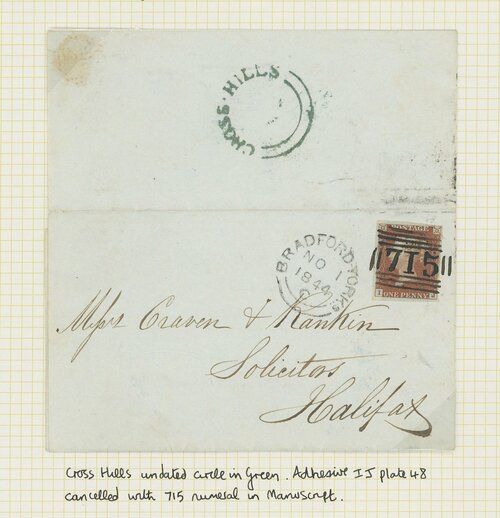 CROSS-HILLS
BRADFORD-YORKS
NO 1
1844
POSTAGE
715
I ONE PENNY J
Messrs Craven & Rankin
Solicitors
Halifax
Cross Hills undated circle in Green. Adhesive IJ plate 48
cancelled with 715 numeral in Manuscript.